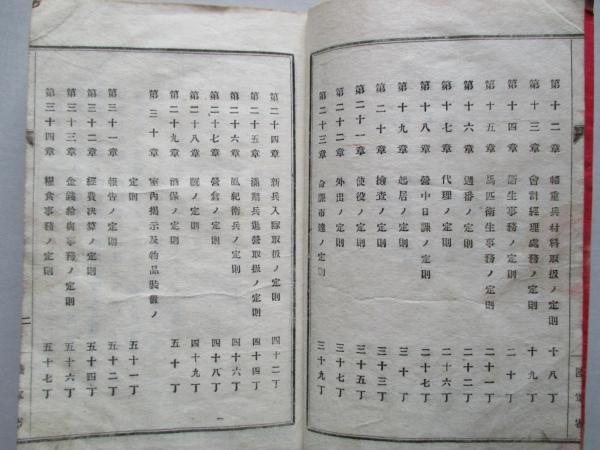 第十二章 輜重兵材料取扱ノ定則 十八丁
第十三章 會計經理處務ノ定則 十九丁
第十四章 衞生事務ノ定則 二十丁
第十五章 馬匹衞生事務ノ定則 二十一丁
第十六章 週番ノ定則 二十二丁
第十七章 代理ノ定則 二十六丁
第十八章 營中日課ノ定則 二十七丁
第十九章 起居ノ定則 三十丁
第二十章 檢査ノ定則 三十三丁
第二十一章 使役ノ定則 三十五丁
第二十二章 外出ノ定則 三十七丁
第二十三章 命課布達ノ定則 三十九丁
第二十四章 新兵入隊取扱ノ定則 四十二丁
第二十五章 滿期兵退營取扱ノ定則 四十四丁
第二十六章 風紀衞兵ノ定則 四十六丁
第二十七章 營倉ノ定則 四十八丁
第二十八章 厩ノ定則 四十九丁
第二十九章 酒保ノ定則 五十丁
第三十章 室內揭示及物品裝置ノ
定則 五十一丁
第三十一章 報告ノ定則 五十二丁
第三十二章 經費決算ノ定則 五十四丁
第三十三章 金錢給與事務ノ定則 五十六丁
第三十四章 糧食事務ノ定則 五十七丁
二
陸軍省